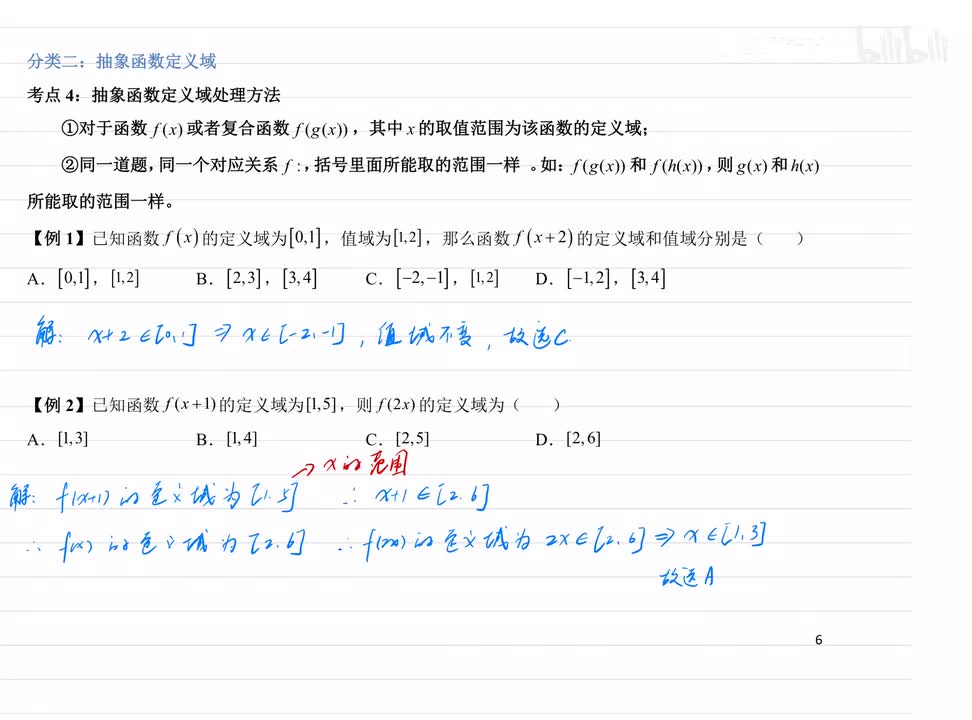 bilibili
分类二：抽象函数定义域
考点 4：抽象函数定义域处理方法
①对于函数 f(x) 或者复合函数 f(g(x))，其中 x 的取值范围为该函数的定义域；
②同一道题，同一个对应关系 f :，括号里面所能取的范围一样 。如：f(g(x)) 和 f(h(x))，则 g(x) 和 h(x)
所能取的范围一样。
【例 1】已知函数 f(x) 的定义域为[0,1]，值域为[1,2]，那么函数 f(x+2) 的定义域和值域分别是（　　）
A．[0,1]，[1,2]　B．[2,3]，[3,4]　C．[−2,−1]，[1,2]　D．[−1,2]，[3,4]
解： x+2∈[0,1] ⇒ x∈[-2,-1]，值域不变，故选C.
【例 2】已知函数 f(x+1) 的定义域为[1,5]，则 f(2x) 的定义域为（　　）
A．[1,3]　B．[1,4]　C．[2,5]　D．[2,6]
→ x的范围
解： f(x+1) 的定义域为[1,5] ∴ x+1∈[2,6]
∴ f(x) 的定义域为[2,6] ∴ f(2x)的定义域为 2x∈[2,6] ⇒ x∈[1,3]
故选A
6